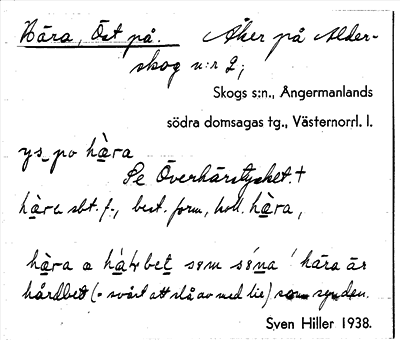 Håra, Öst på. Åker på Alder-
skog n:r 2;
Skogs s:n., Ångermanlands
södra domsagas tg., Västernorrl. l.
ys_ po hàra
Se Överhårstycket. †
hàra sbt. f., best. form, koll. hàra,
hàra a hạ́ḷbet sǝm sé́na! håra är
hårdbett (= svårt att slå av med lie) som synden.
Sven Hiller 1938.